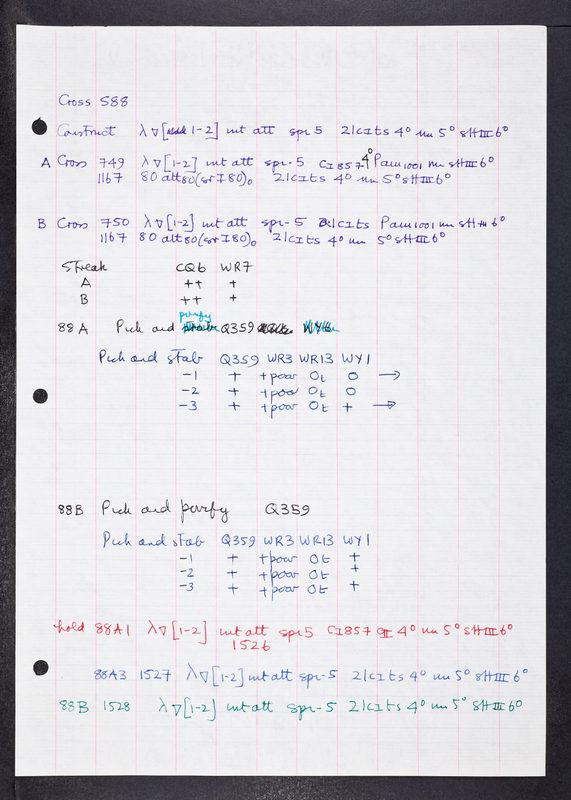 Cross 588
Construct λ∇[1-2] int att spi 5 21cIts 4° nin 5° sHIII6°
A Cross 749 λ∇[1-2] int att spi-5 cI857 4° Pam1001 nin sHIII6°
1167 80 att80(srI80)₀ 21cIts 4° nin 5° sHIII6°
B Cross 750 λ∇[1-2] int att spi-5 21cIts Pam1001 nin sHIII6°
1167 80 att80(srI80)₀ 21cIts 4° nin 5° sHIII6°
Streak CQ6 WR7
A ++ +
B ++ +
88A Pick and purify Q359
Pick and stab Q359 WR3 WR13 WY1
-1 + +poor Ot O →
-2 + +poor Ot O
-3 + +poor Ot + →
88B Pick and purify Q359
Pick and stab Q359 WR3 WR13 WY1
-1 + +poor Ot +
-2 + +poor Ot +
-3 + +poor Ot +
hold 88A1 λ∇[1-2] int att spi 5 cI857 4° nin 5° sHIII6°
1526
88A3 1527 λ∇[1-2] int att spi-5 21cIts 4° nin 5° sHIII6°
88B 1528 λ∇[1-2] int att spi-5 21cIts 4° nin 5° sHIII6°